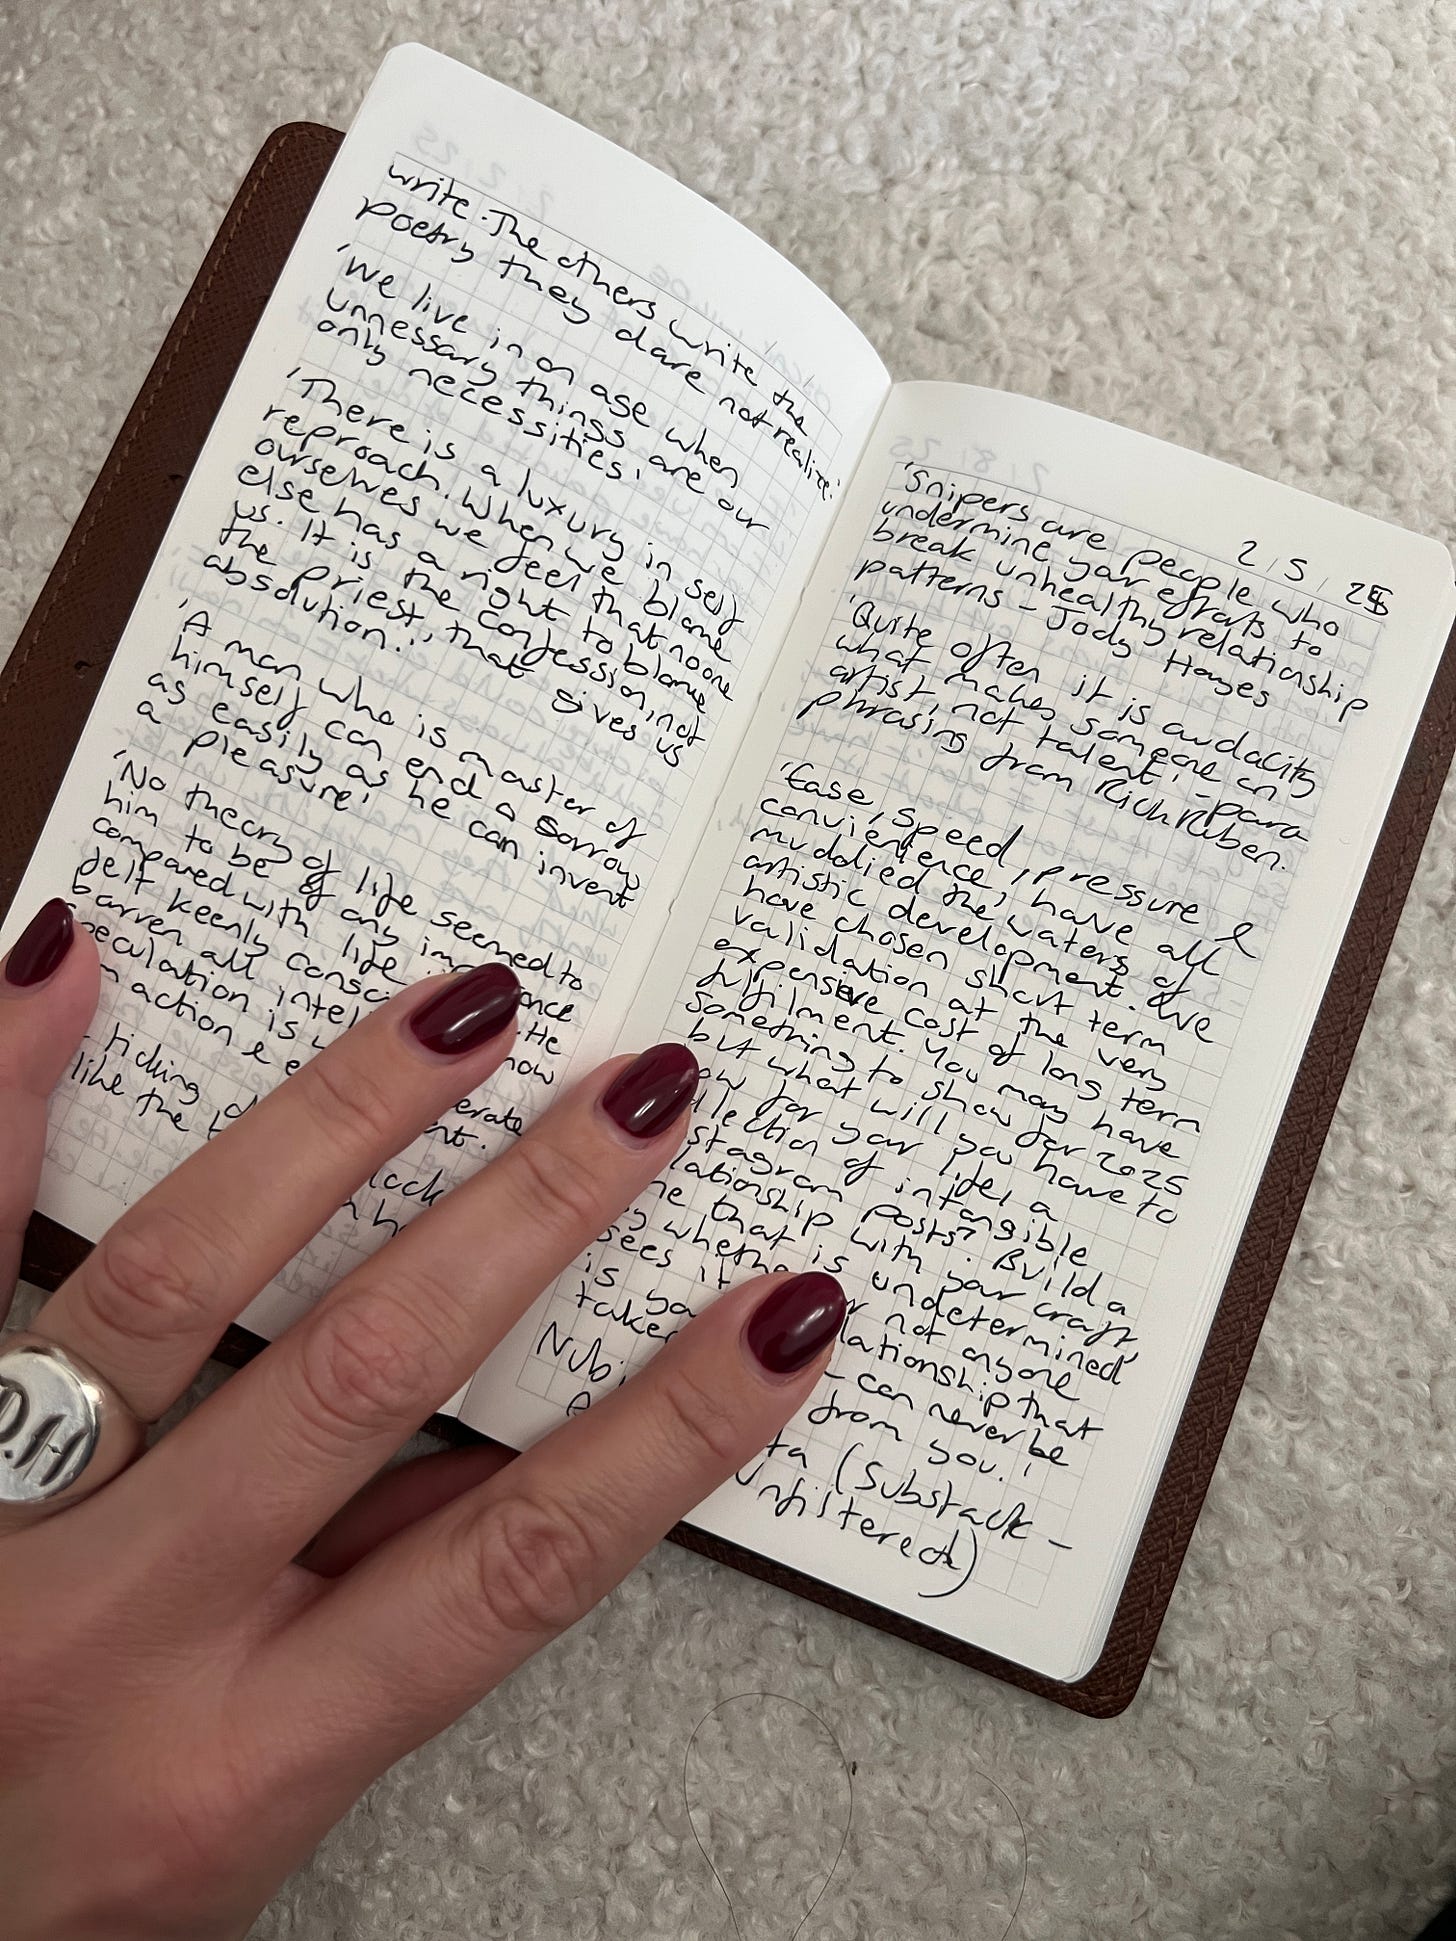 write. The others write the
poetry they dare not realize.'
'We live in an age when
unnessary things are our
only necessities.'
'There is a luxury in self
reproach. When we blame
ourselves we feel that no one
else has a right to blame
us. It is the confession, not
the priest, that gives us
absolution.'
'A man who is master of
himself can end a sorrow
as easily as he can invent
a pleasure'
'No theory of life seemed to
him to be of any importance
compared with life He
felt keenly now
barren all
speculation is
action &
ticking
like the
2, 5, 25
'Snipers are people who
undermine your efforts to
break unhealthy relationship
patterns - Jody Hayes
'Quite often it is audacity
what makes someone an
artist, not talent.' - para
phrasing from Rich Ruben.
'Ease, speed, pressure &
convienience, have all
muddied the waters of
artistic development. We
have chosen short term
validation at the very
expensive cost of long term
fulfilment. You may have
something to show for 2025
but what will you have to
for your life, a
of intangible
posts? Build a
with your craft,
that is undetermined
not anyone
sees it
is that
can never be
from you.'
(Substack -
Unfiltered)
P.H